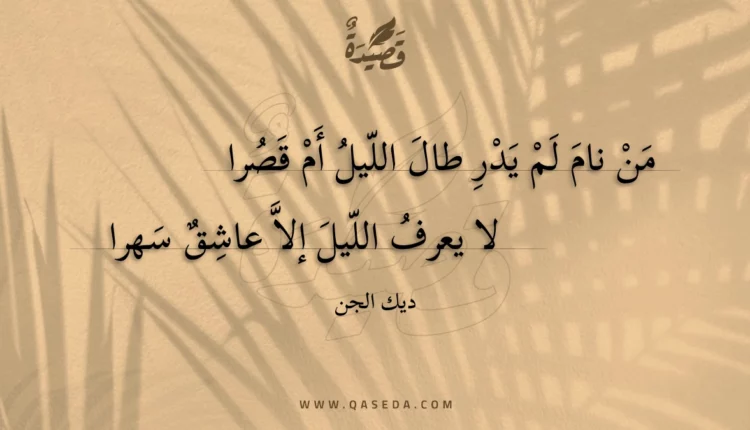 قَصِيدَةٌ
مَنْ نامَ لَمْ يَدْرِ طالَ اللّيلُ أَمْ قَصُرا
لا يعرفُ اللّيلَ إلاَّ عاشِقٌ سَهرا
ديك الجن
WWW.QASEDA.COM